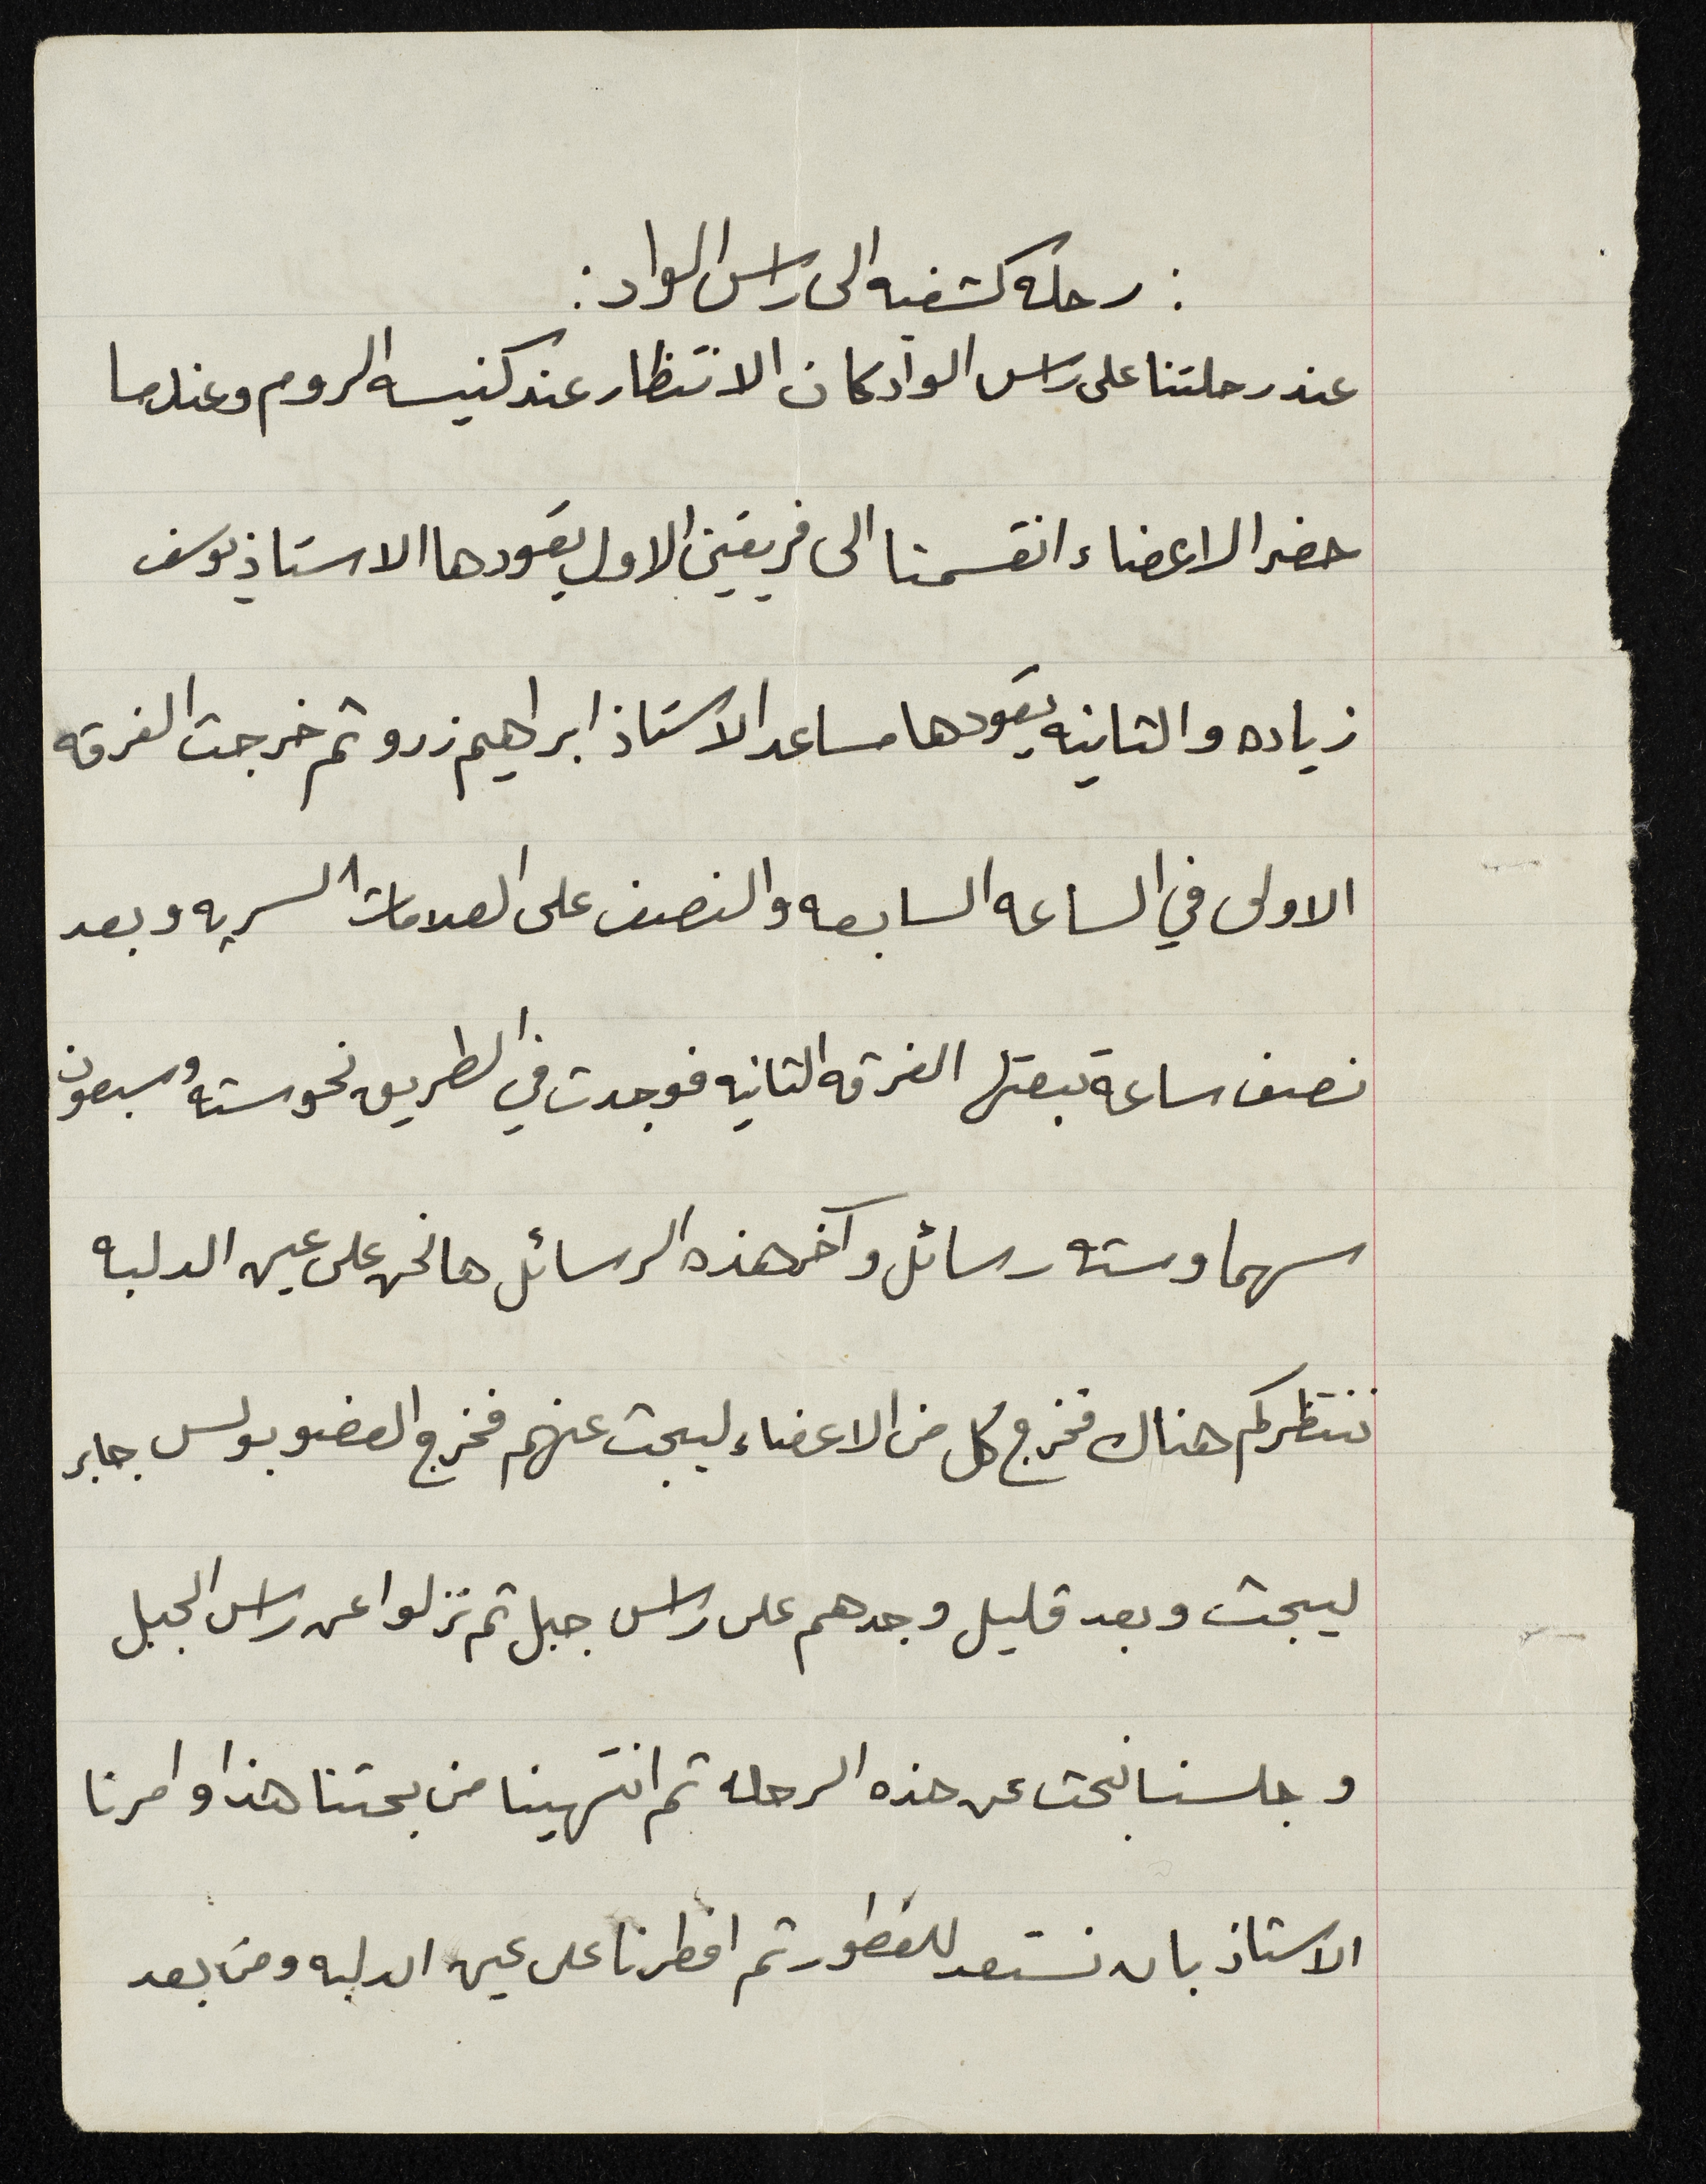 : رحله كشفيه الى راس الواد :
عند رحلتنا على راس الواد كان الانتظار عند كنيسه الروم وعندما
حضر الاعضاء انقسمنا الى فريقين الاول يقودها الاستاذ يوسف
زياده والثانيه يقودها مساعد الاستاذ ابراهيم زرو ثم خرجت الفرقه
الاولى في الساعه السابعه والنصف على العلامات السريه وبعد
نصف ساعة تبعتها الفرقه الثانيه فوجدت في الطريق نحو سته وسبعون
سهما وسته رسائل وآخر هذه الرسائل ها نحن على عين الدلبه
ننتظركم هناك فخرج كل من الاعضاء ليبحث عنهم فخرج العضو بولس جابر
ليبحث وبعد قليل وجدهم على راس جبل ثم نزلوا عن راس الجبل
وجلسنا نبحث عن هذه الرحله ثم انتهينا من بحثنا هذا وامرنا
الاستاذ بان نستعد للفطور ثم افطرنا على عين الدلبه ومن بعد